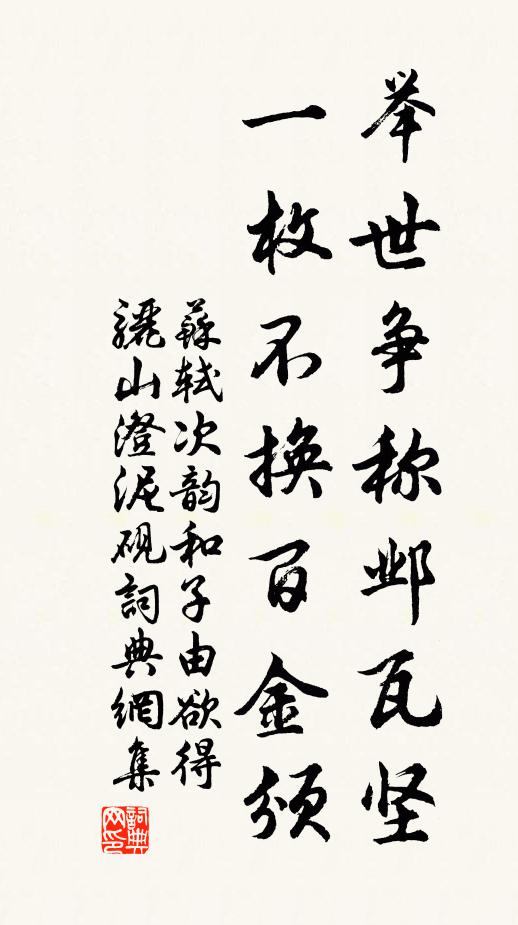 举世争称邺瓦坚
一枚不换百金颁
蘇轼次韵和子由欲得
驪山澄泥砚詞典網集
詞典网印